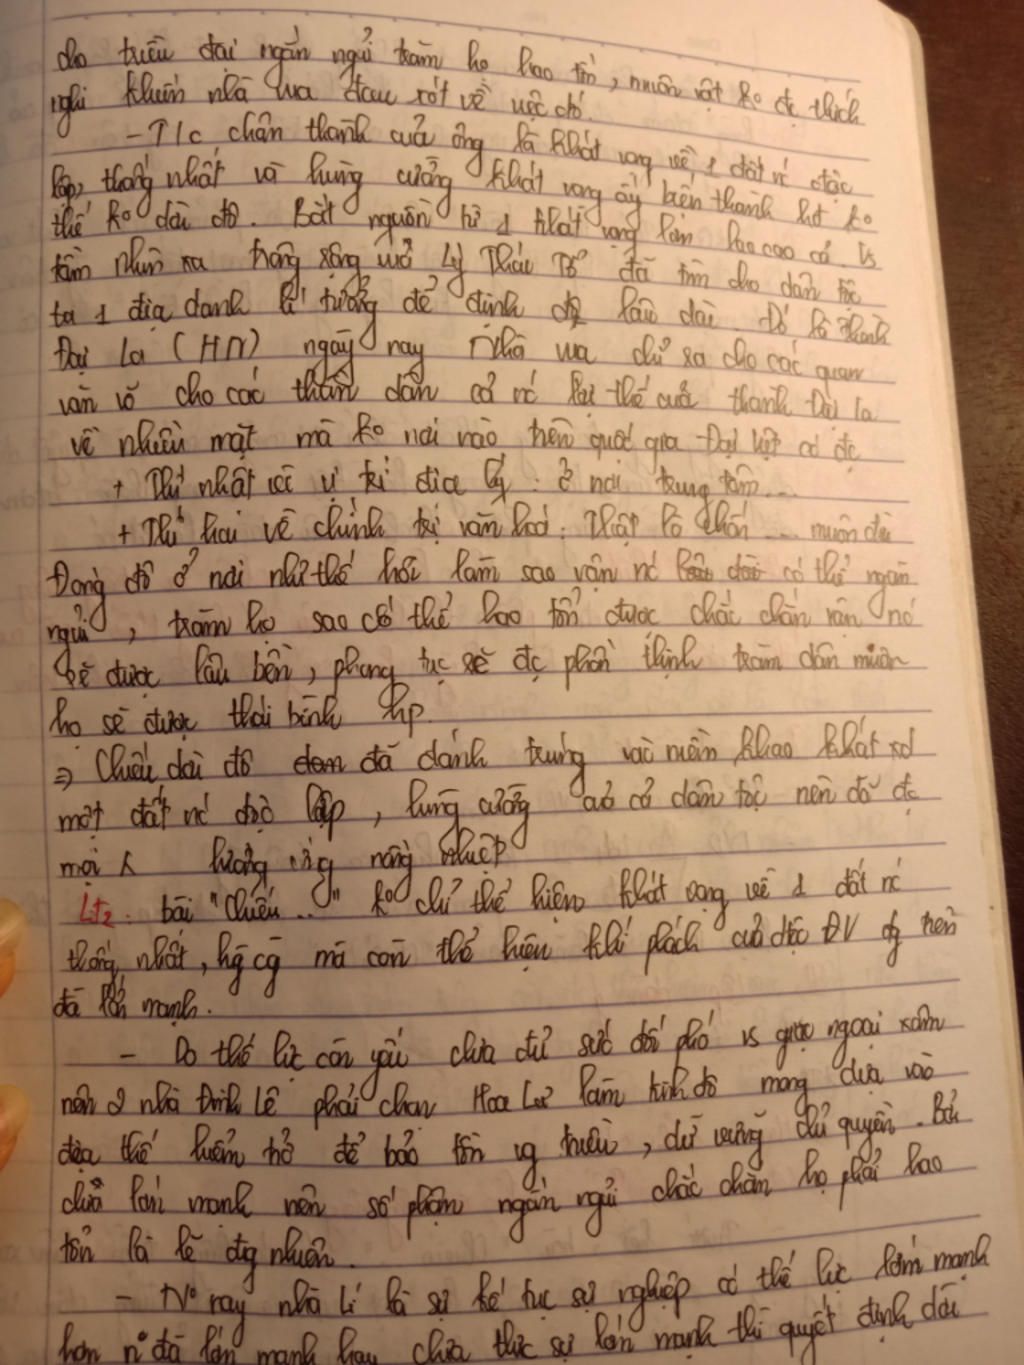 cho triều đại ngắn ngủi trăm họ hao tổn, muôn vật ko đc thích
nghi khiến nhà vua đau xót về việc đó.
- T/c chân thành của ông là khát vọng về 1 đất nc độc
lập, thống nhất và hùng cường khát vọng ấy biến thành ko
thể ko dời đô. Bắt nguồn từ 1 khát vọng lớn lao cao cả. Vs
tầm nhìn xa trông rộng Lý Thái Tổ đã tìm cho dân tộc
ta 1 địa danh lí tưởng để định đô lâu dài. Đó là thành
Đại La (HN) ngày nay Nhà vua chỉ ra cho các quan
văn võ cho các thần dân cả nc lợi thế của thành Đại La
về nhiều mặt mà ko nơi nào trên quốc gia Đại Việt có đc
+ Thứ nhất về vị trí địa lý : ở nơi trung tâm...
+ Thứ hai về chính trị văn hoá: Thật là chốn ... muôn đời
Đóng đô ở nơi như thế hỏi làm sao vận nc có thể ngắn
ngủi, trăm họ sao có thể hao tổn được chắc chắn vận nc
sẽ được lâu bền, phong tục sẽ đc phồn thịnh trăm dân muôn
họ sẽ được thái bình hp.
=> Chiếu dời đô đã đánh trúng vào niềm khao khát xd
một đất nc độc lập, hùng cường của cả dân tộc nên đã đc
mọi hưởng ứng nồng nhiệt
Lđ2. bài "Chiếu..." ko chỉ thể hiện khát vọng về 1 đất nc
thống nhất, hg cg mà còn thể hiện khí phách của dtộc ĐV đg trên
đà lớn mạnh.
- Do thế lực còn yếu chưa đủ sức đối phó vs giặc ngoại xâm
nên 2 nhà Đinh Lê phải chọn Hoa Lư làm kinh đô mong dựa vào
địa thế hiểm trở để bảo tồn vg triều, giữ vững chủ quyền. Bởi
chưa lớn mạnh nên số phận ngắn ngủi chắc chắn họ phải hao
tổn là lẽ đg nhiên.
- nay nhà Lí là sự kế tục sự nghiệp có thế lực lớn mạnh
hơn đã lớn mạnh hay chưa thực sự lớn mạnh thì quyết định dời